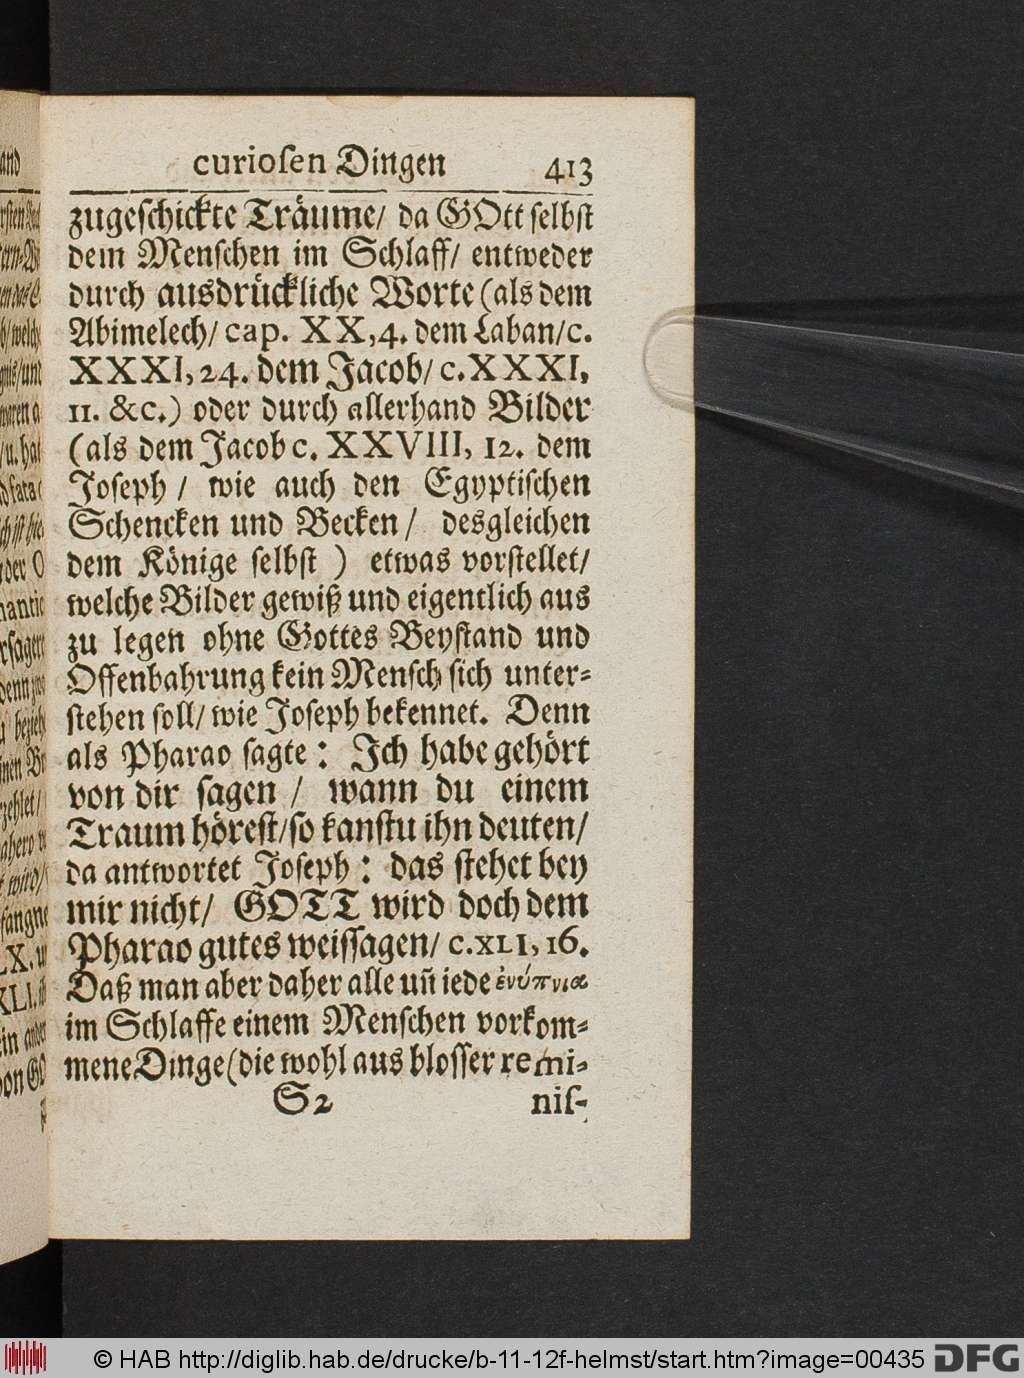 curiosen Dingen 413
zugeschickte Träume/ da GOtt selbst
dem Menschen im Schlaff/ entweder
durch ausdrückliche Worte (als dem
Abimelech/ cap. XX,4. dem Laban/c.
XXXI,24. dem Jacob/ c.XXXI,
11. &c.) oder durch allerhand Bilder
(als dem Jacob c. XXVIII, 12. dem
Joseph / wie auch den Egyptischen
Schencken und Becken / desgleichen
dem Könige selbst ) etwas vorstellet/
welche Bilder gewiß und eigentlich aus
zu legen ohne Gottes Beystand und
Offenbahrung kein Mensch sich unter-
stehen soll/ wie Joseph bekennet. Denn
als Pharao sagte: Ich habe gehört
von dir sagen / wann du einem
Traum hörest/so kanstu ihn deuten/
da antwortet Joseph: das stehet bey
mir nicht/ GOTT wird doch dem
Pharao gutes weissagen/ c.XLI,16.
Daß man aber daher alle uñ iede ἐνύπνια
im Schlaffe einem Menschen vorkom-
mene Dinge (die wohl aus blosser remi-
S2 nis-
© HAB http://diglib.hab.de/drucke/b-11-12f-helmst/start.htm?image=00435 DFG